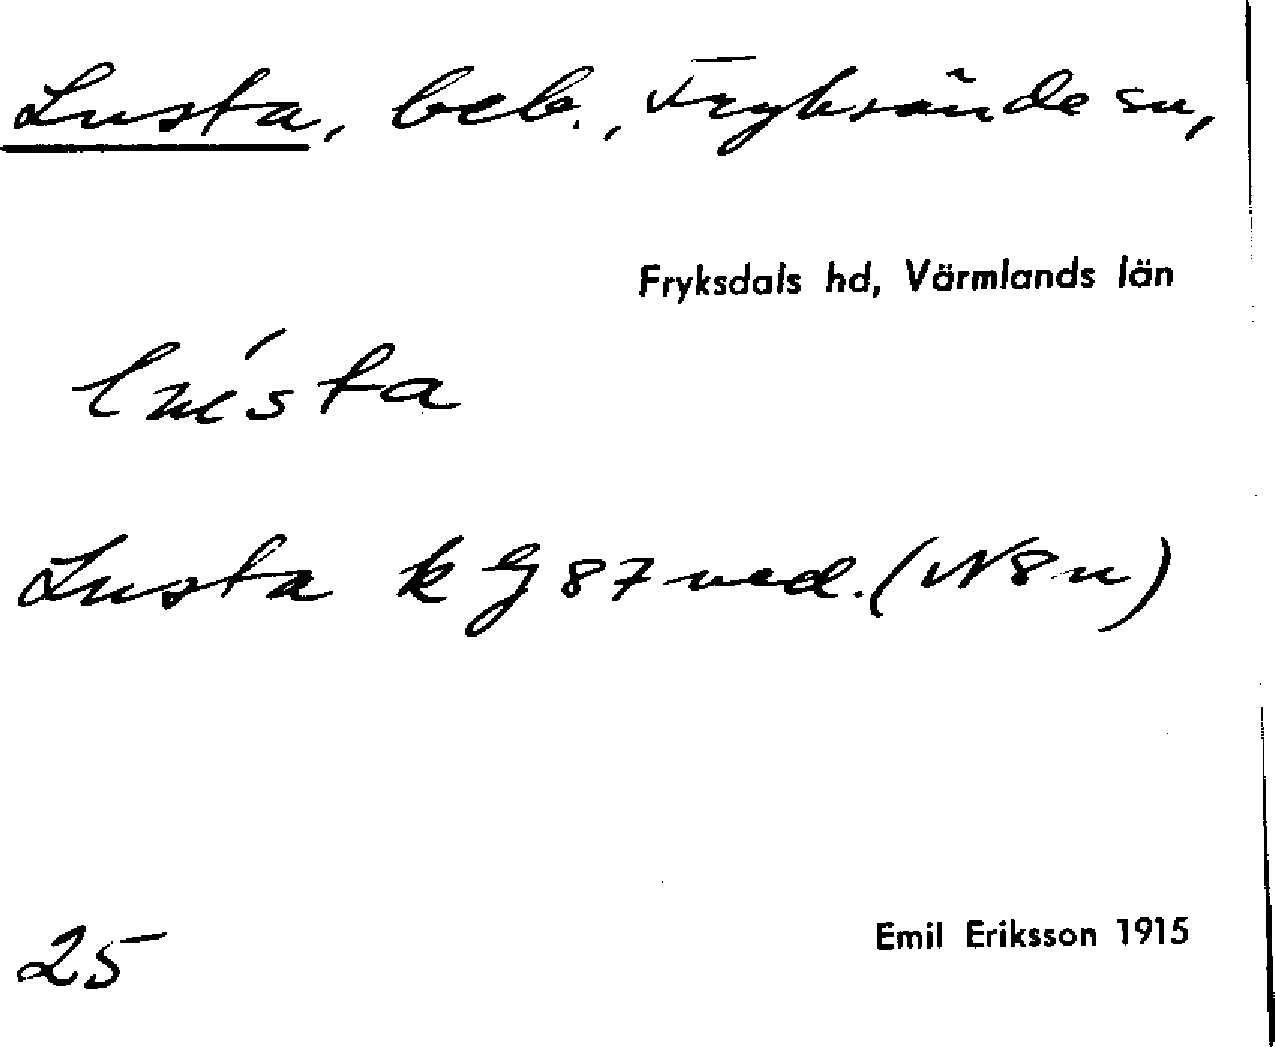 Lusta, beb., Fryksände sn,
Fryksdals hd, Värmlands län
Lusta k G 87 ned. (N8n)
25
Emil Eriksson 1915